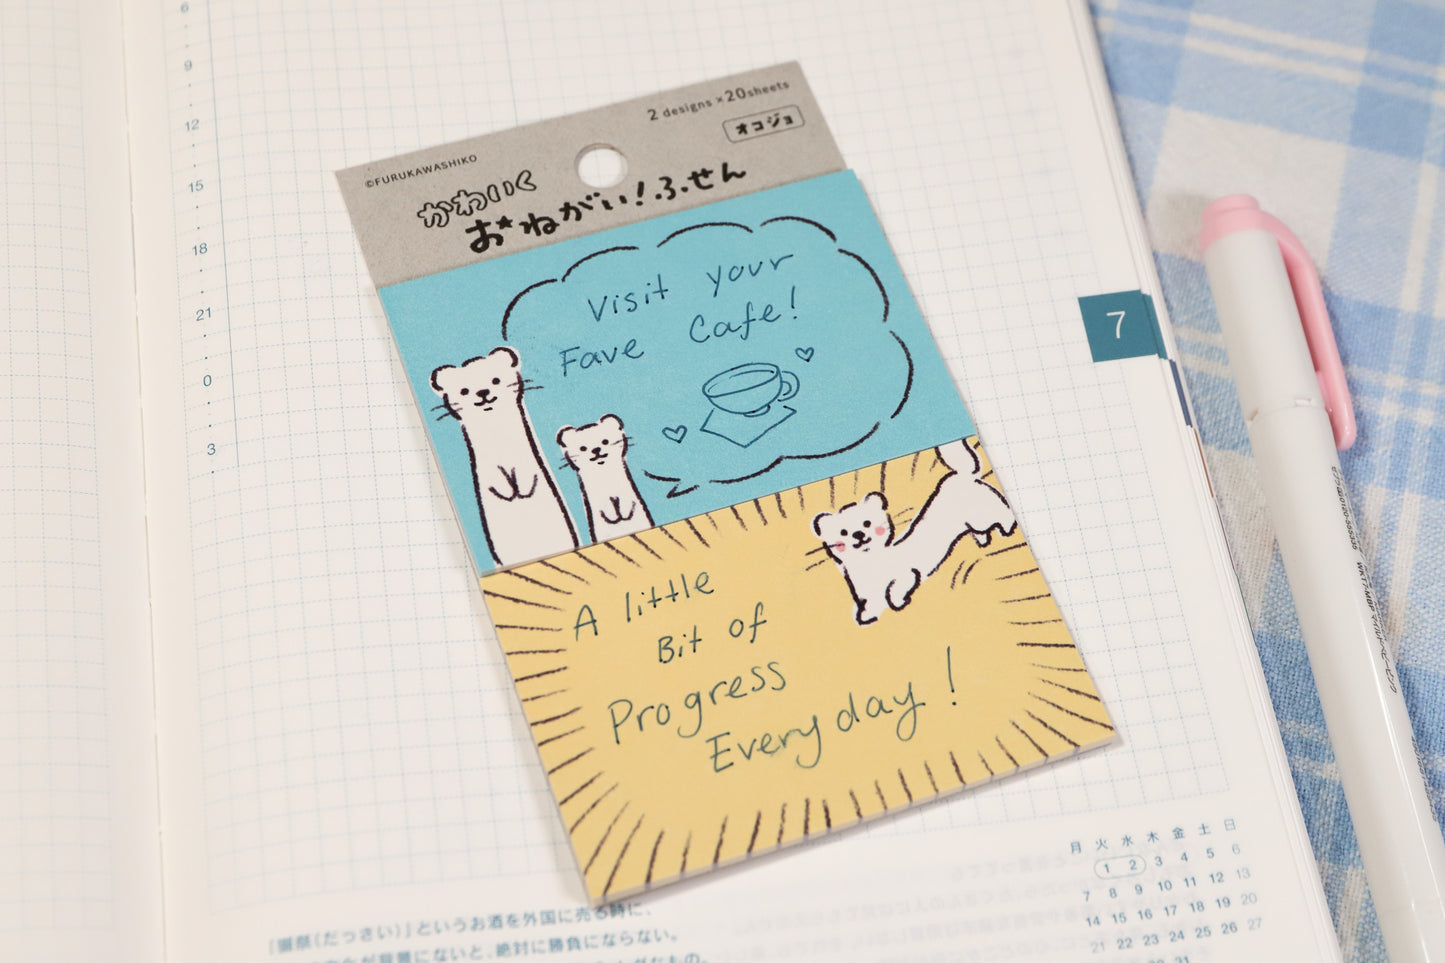 6
9
12
15
18
21
0
3
2 designs×20sheets
オコジョ
©FURUKAWASHIKO
かわいく
おねがい!ふせん
Visit your
Fave Cafe!
A little
Bit of
Progress
Everyday!
7
月 火 水 木 金 土 日
1 2 3 4 5 6
7 8 9 10 11 12 13
14 15 16 17 18 19 20
21 22 23 24 25 26 27
30 31
「獺祭(だっさい)」というお酒を外国に売る時に、
背景にないと、絶対に勝負にならない。
WKT7-MBP マイルドベビーピンク